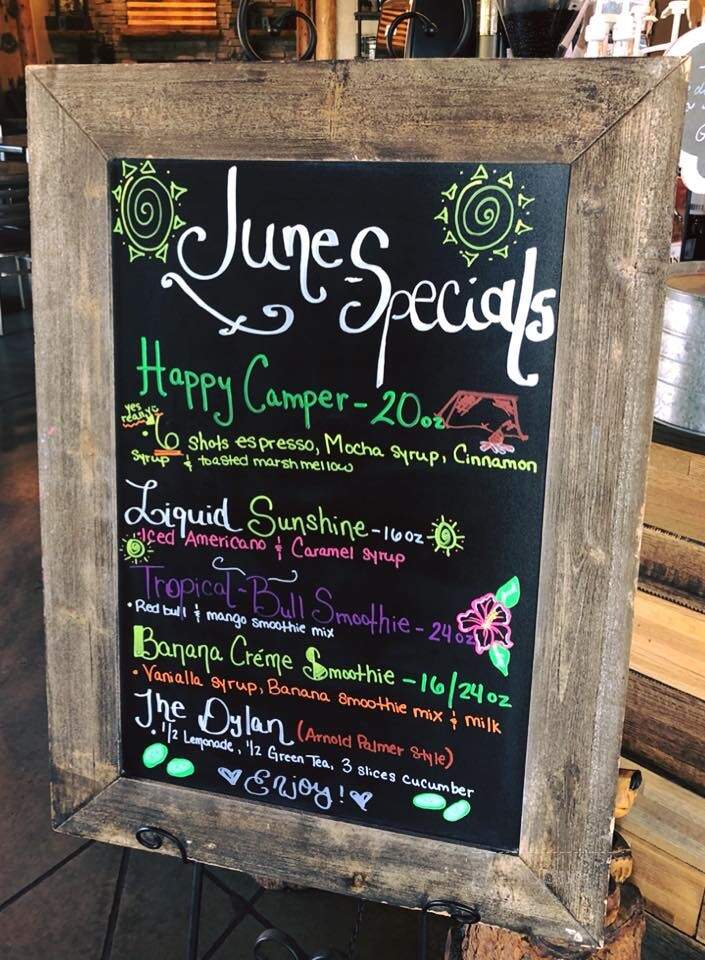 June-Specials
Happy Camper - 20oz
yes
really
• 6 shots espresso, Mocha syrup, Cinnamon
syrup & toasted marshmellow
Liquid Sunshine - 16oz -
• Iced Americano & Caramel syrup
Tropical-Bull Smoothie - 24oz
• Red bull & mango smoothie mix
Banana Créme Smoothie - 16/24oz
• Vanialla syrup, Banana smoothie mix & milk
The Dylan (Arnold Palmer Style)
• 1/2 Lemonade, 1/2 Green Tea, 3 slices cucumber
Enjoy!